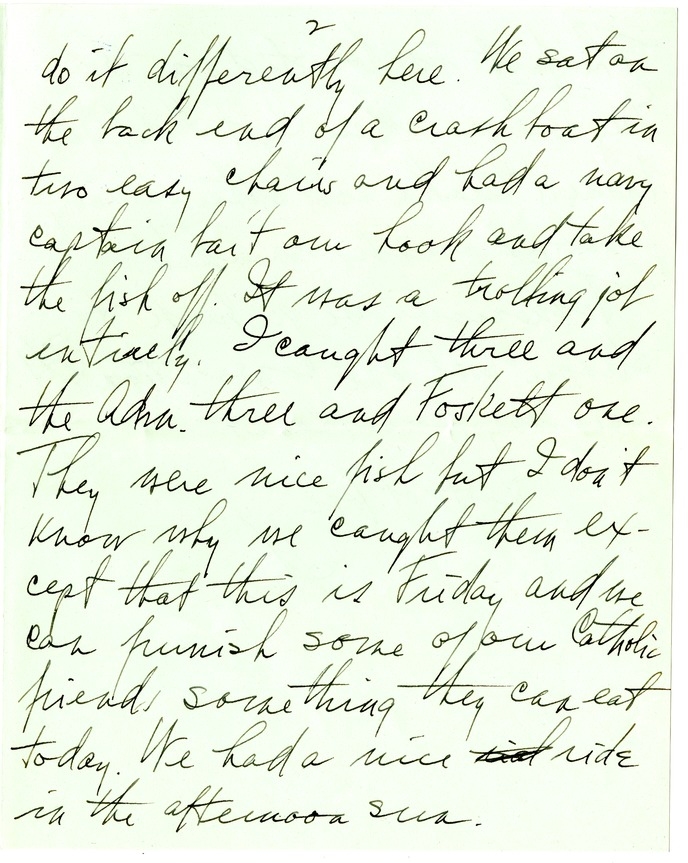 2
do it differently here. We sat on
the back end of a crash boat in
two easy chairs and had a navy
captain bait our hook and take
the fish off. It was a trolling job
entirely. I caught three and
the Adm. three and Foskett one.
They were nice fish but I don't
know why we caught them ex-
cept that this is Friday and we
can furnish some of our Catholic
friends something they can eat
today. We had a nice ride
in the afternoon sun.